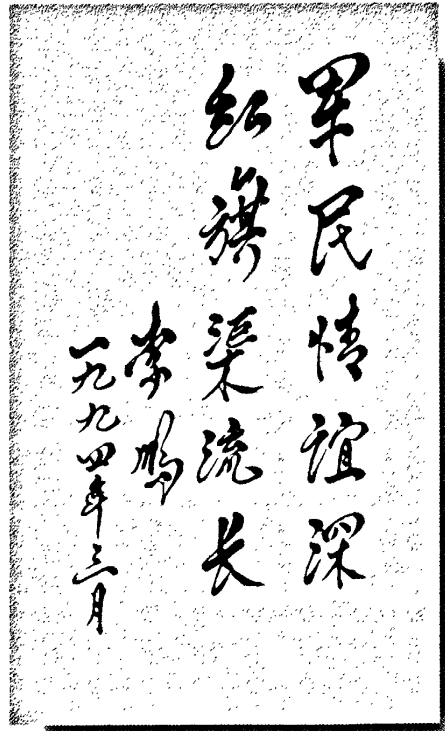 军民情谊深
红旗渠流长
李鹏
一九九四年三月